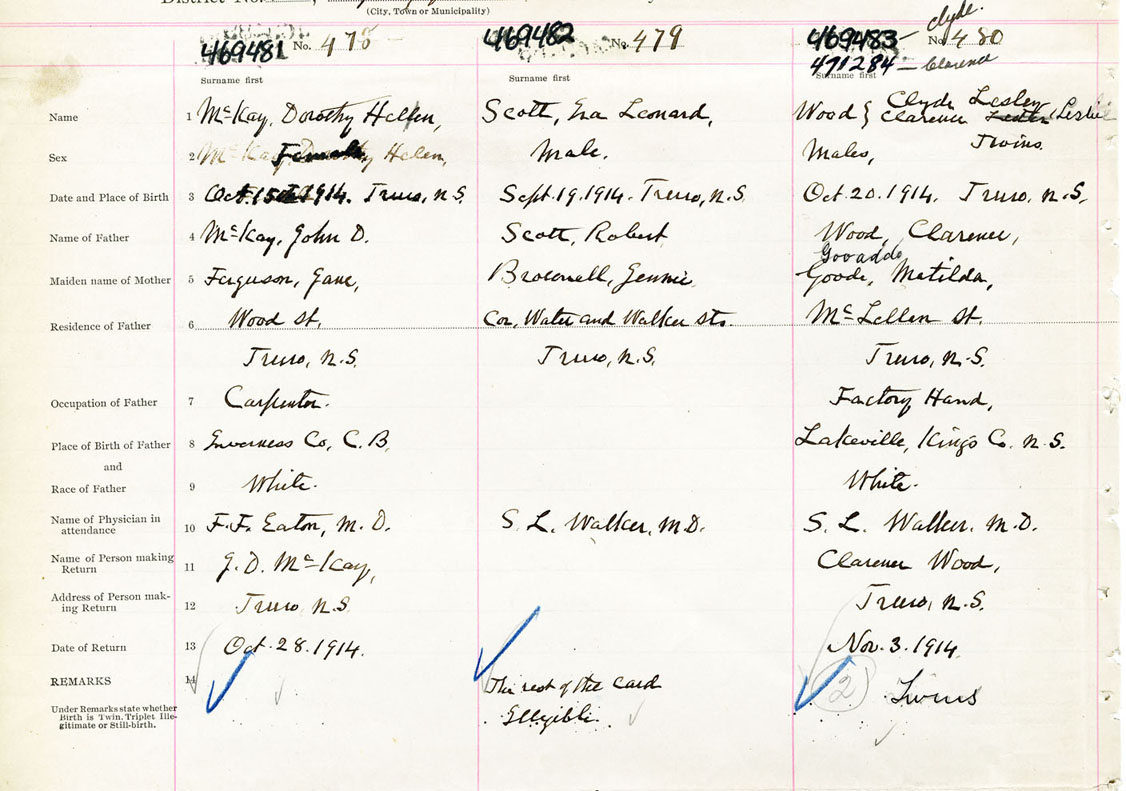 District No.
(City, Town or Municipality)
469481 No. 478
469482 No. 479
469483 - Clyde. No. 480
471284 - Clarence
Surname first Surname first Surname first
Name 1 McKay, Dorothy Hellen, Scott, Eva Leonard, Wood { Clyde Lesley
Clarence Lester, Leslie
Twins
Sex 2 McKay, Dorothy Helen, Female Male. Males,
Date and Place of Birth 3 Oct. 15 1914. Truro, N.S. Sept. 19. 1914. Truro, N.S. Oct. 20. 1914. Truro, N.S.
Name of Father 4 McKay, John D. Scott, Robert Wood, Clarence,
Maiden name of Mother 5 Ferguson, Jane, Brownell, Jennie Goode, Matilda,
Residence of Father 6 Wood St. Cor. Water and Walker Sts. McLellen St.
Truro, N.S. Truro, N.S. Truro, N.S.
Occupation of Father 7 Carpentor. Factory Hand,
Place of Birth of Father 8 Inverness Co, C.B. Lakeville, Kings Co. N.S.
and
Race of Father 9 White. White.
Name of Physician in
attendance 10 F.F. Eaton, M.D. S. L. Walker, M.D. S. L. Walker. M.D.
Name of Person making
Return 11 J.D. McKay, Clarence Wood,
Address of Person mak-
ing Return 12 Truro, N.S. Truro, N.S.
Date of Return 13 Oct. 28. 1914. Nov. 3. 1914.
REMARKS 14 The rest of the Card (2) Twins
Ellegible.
Under Remarks state whether
Birth is Twin, Triplet Ille-
gitimate or Still-birth.